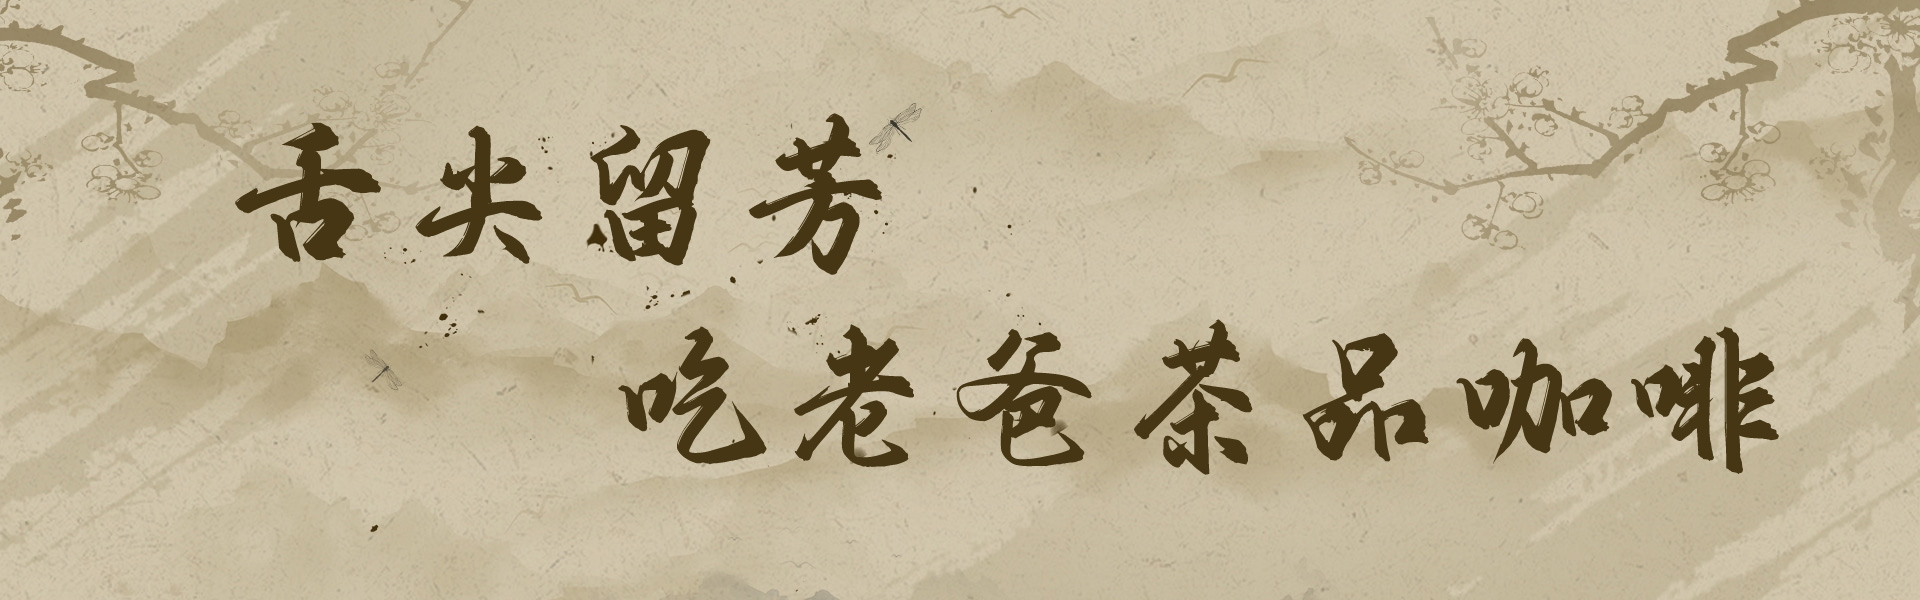 舌尖留芳
吃老爸茶品咖啡